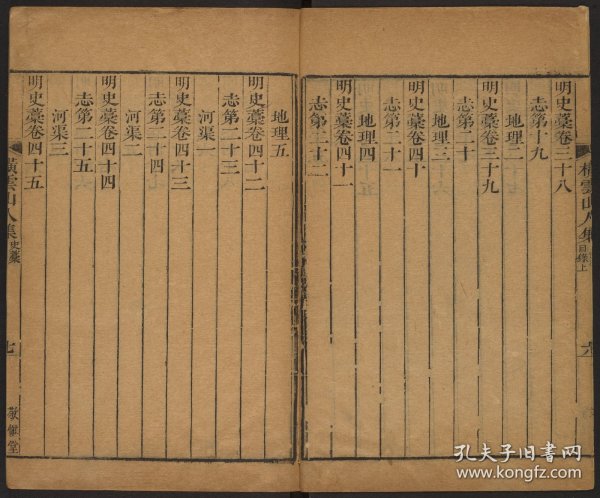 橫雲山人集
目錄上
六
明史藁卷三十八
志第十九
地理二
明史藁卷三十九
志第二十
地理三
明史藁卷四十
志第二十一
地理四
明史藁卷四十一
志第二十二
地理五
明史藁卷四十二
志第二十三
河渠一
明史藁卷四十三
志第二十四
河渠二
明史藁卷四十四
志第二十五
河渠三
明史藁卷四十五
橫雲山人集
史藁
七
敬慎堂
孔夫子旧书网
www.kongfz.com